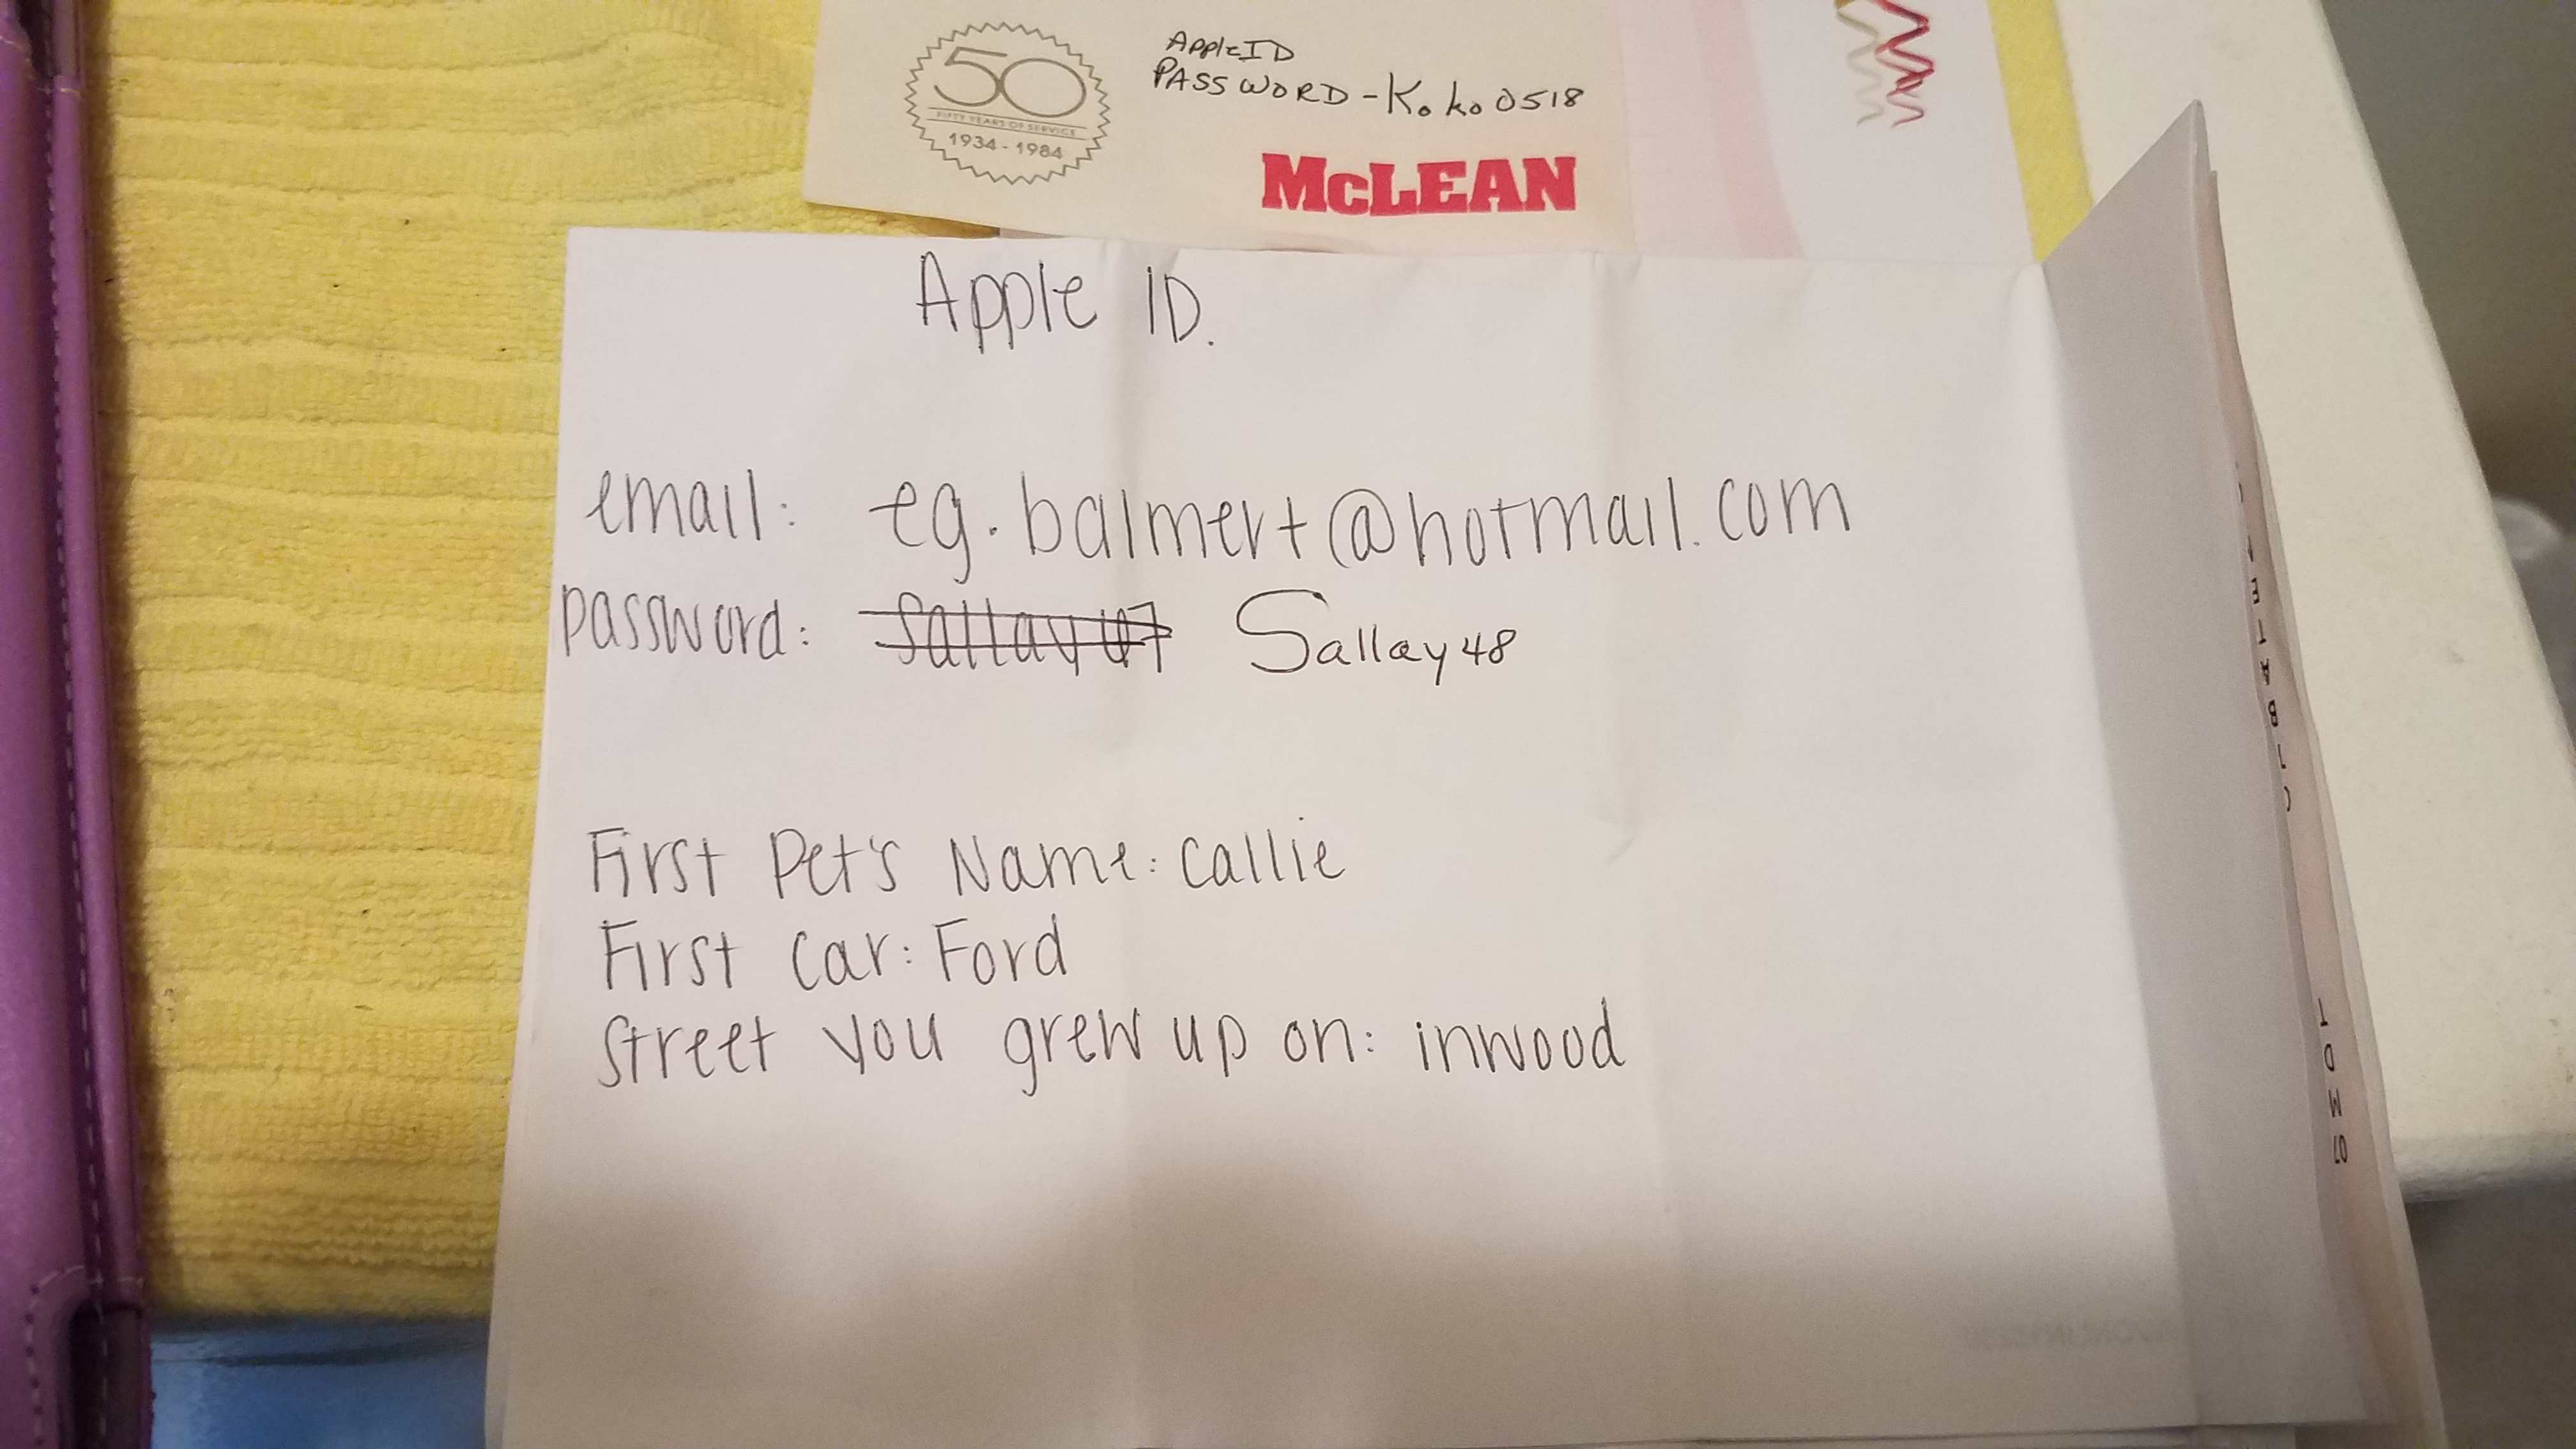 50
FIFTY YEARS OF SERVICE
1934 - 1984
AppleID
PASSWORD - Koko0518
McLEAN
Apple ID.
email: eg.balmert@hotmail.com
password: Sallay47 Sallay48
First Pet's Name: Callie
First Car: Ford
Street you grew up on: inwood